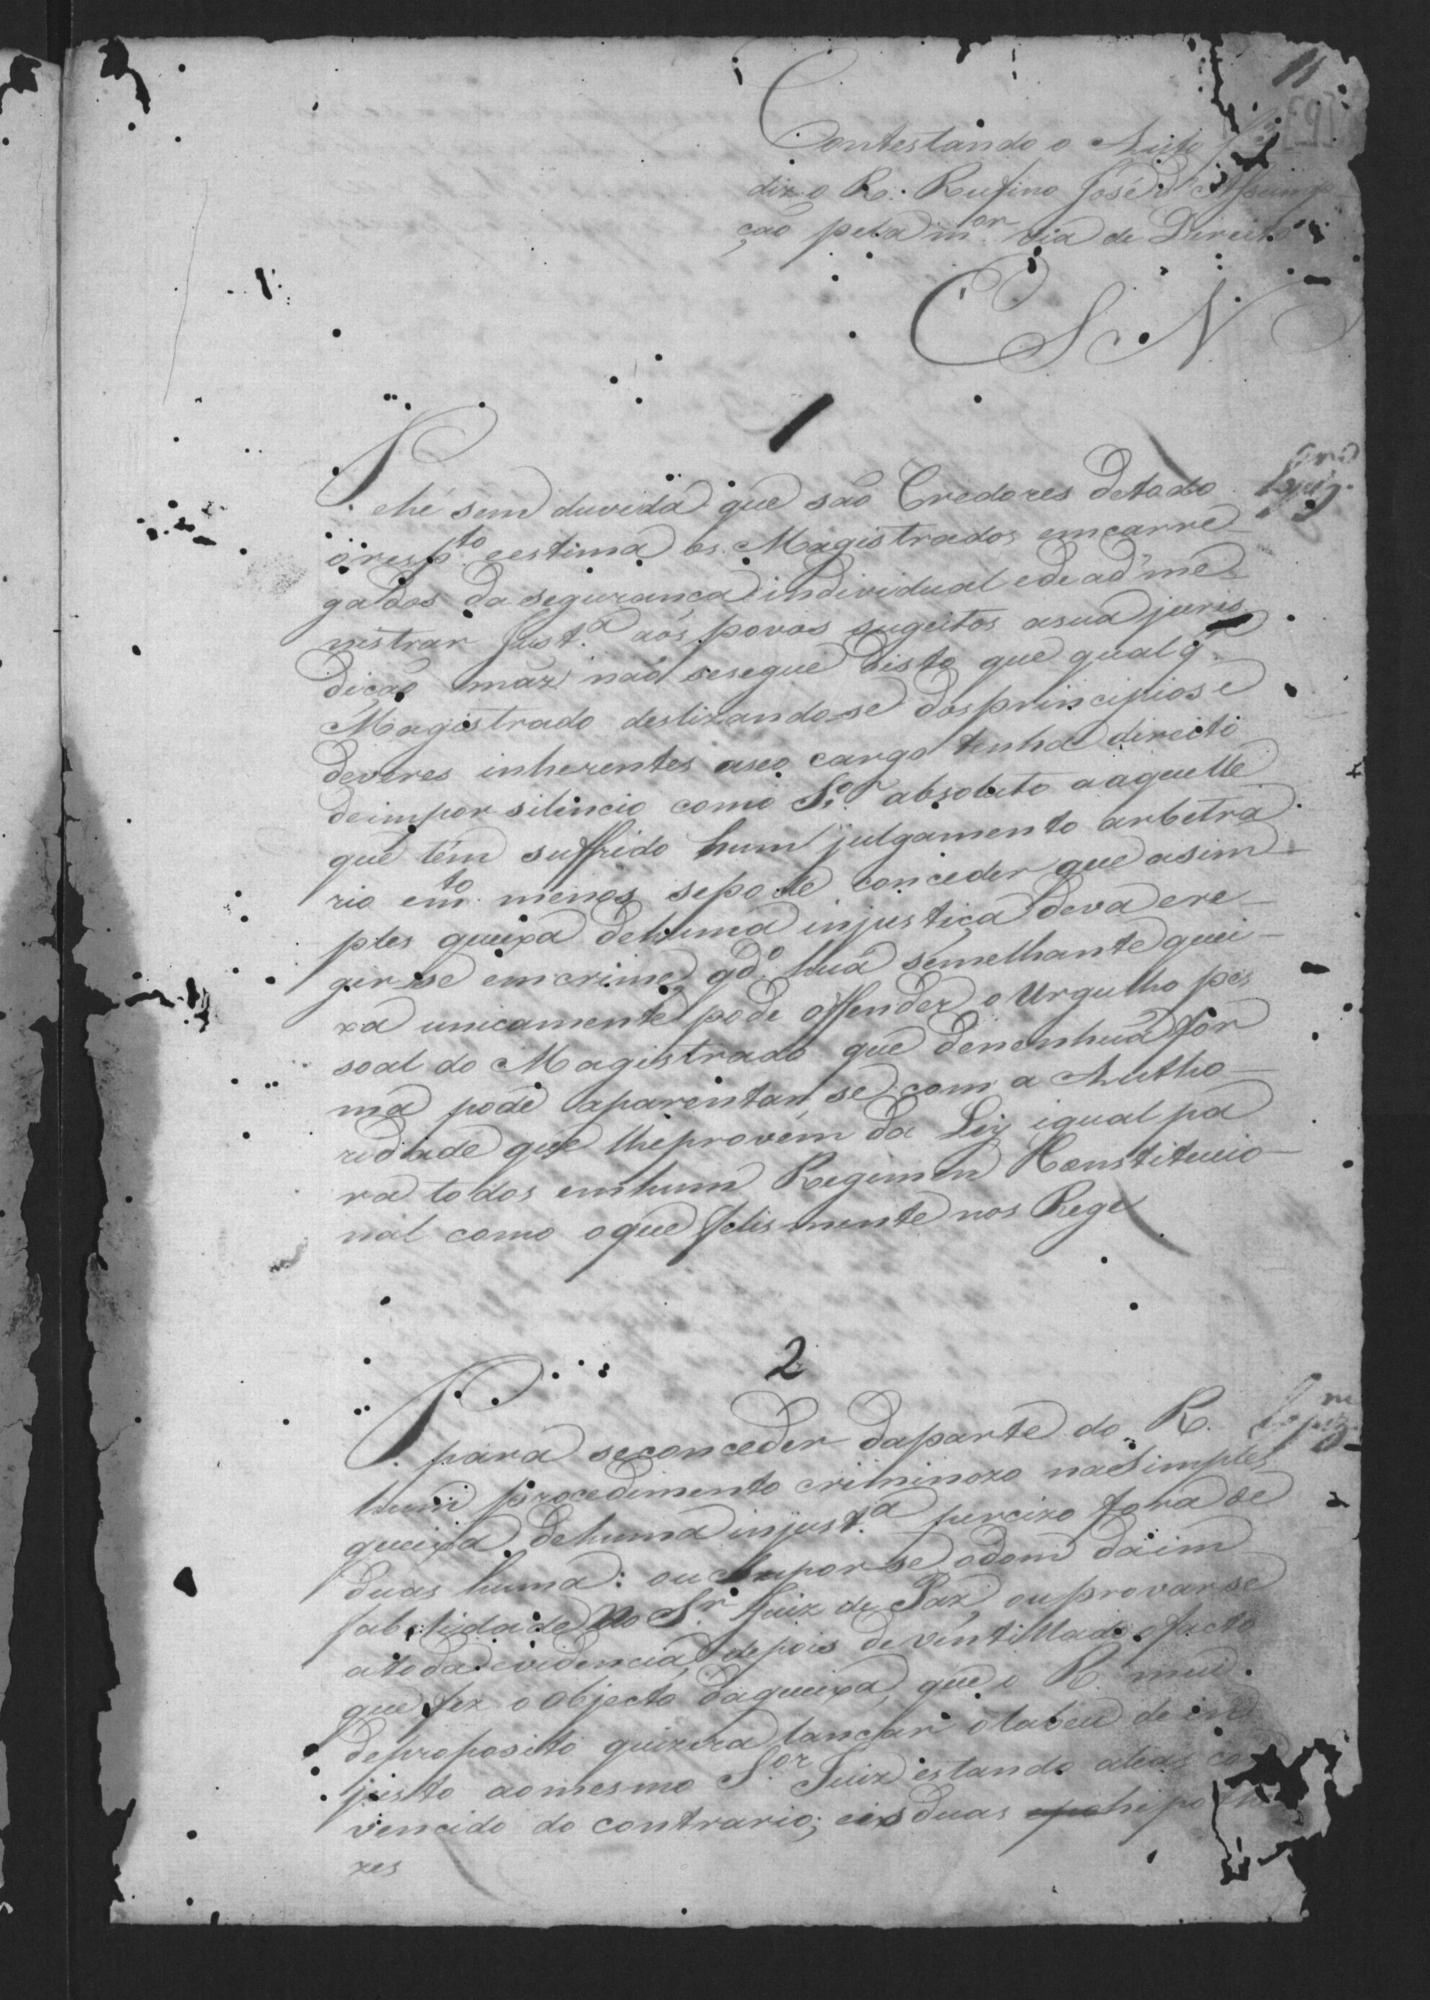 11
Contestando o Auto
diz o R. Rufino José d'Assump
ção pela m.or via de Direito
E S N
1
P. ehé sem duvida que são Credores detodo
o resp.to eestima os Magistrados emcarre
gados da segurança individual edead me
nistrar Just.a aos povos sugeitos asua juris
dição maz não sesegue disto que qualq.r
Magistrado deslizando-se dosprincipios e
deveres inherentes aseo cargo tenha direito
deimpor silencio como S.or absoluto a aquelle
que têm suffrido hum julgamento arbetra
rio em.to menos sepode conceder que asim
ples queixa dehuma injustiça deva ere-
gir-se emcrime, qd.o huã semelhante quei-
xa unicamente pode offender o Urgulho pes
soal do Magistrado que denenhuã for
ma pode aparentar se com a Autho-
ridade que lheprovém da Ley igual pa
ra todos emhum Regimen Constitucio-
nal como oque felismente nos Rege
2
P. para seconceder daparte do R.
hum procedimento criminozo nasimples
queixa dehuma injust.a percizo fora de
duas huma: ou supor-se odom dain
fabelidade no S.r Juiz de Paz, ou provar se
atoda evidencia depois deventillado o facto
que fez o objecto daqueixa, que o R. mui
deproposito quizera lançar o labeu de in
justo aomesmo S.or Juiz estando alias con
vencido do contrario; eisduas hipothe
zes